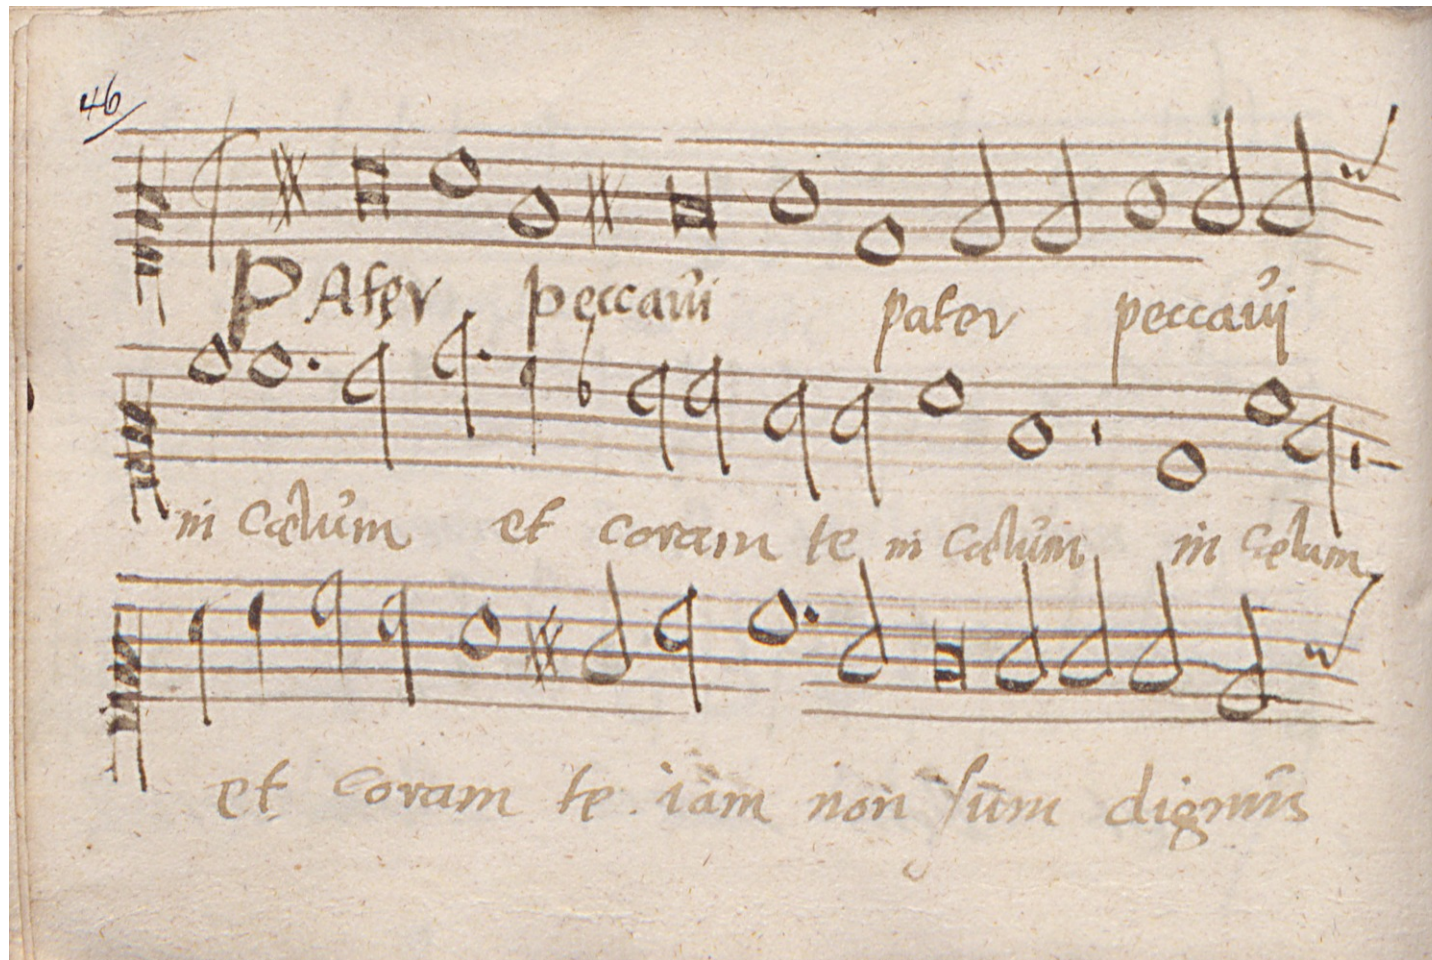 46
PAter peccavi pater peccavij
in cœlum et coram te in cœlum in cœlum
et coram te iam non sum dignus